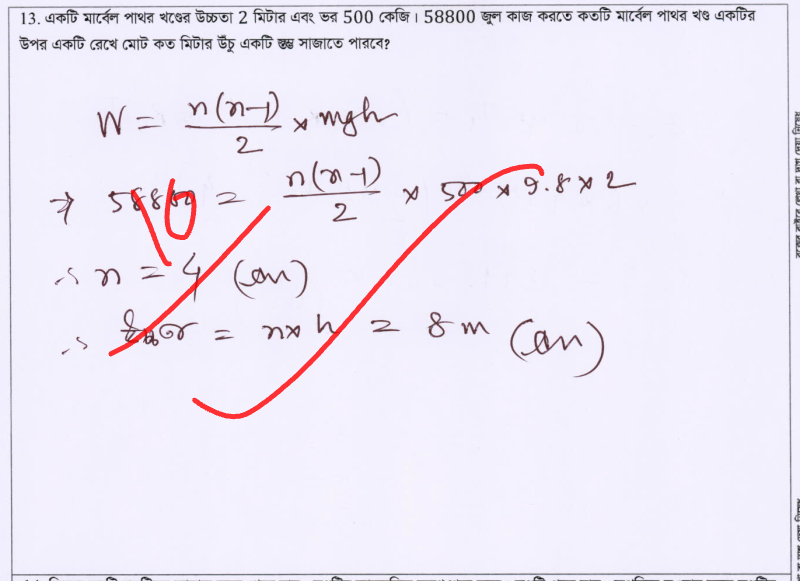 13. একটি মার্বেল পাথর খণ্ডের উচ্চতা 2 মিটার এবং ভর 500 কেজি। 58800 জুল কাজ করতে কতটি মার্বেল পাথর খণ্ড একটির
উপর একটি রেখে মোট কত মিটার উঁচু একটি স্তম্ভ সাজাতে পারবে?
W = n(n-1)/2 × mgh
⇒ 58800 = n(n-1)/2 × 500 × 9.8 × 2
∴ n = 4 (Ans)
10
∴ উচ্চতা = n×h = 8 m (Ans)